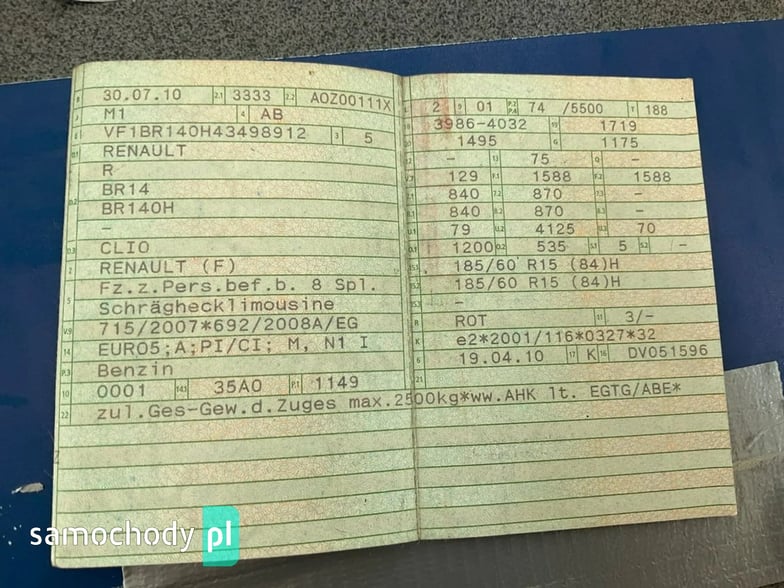 B 30.07.10 2.1 3333 2.2 A0Z00111X
J M1 4 AB
E VF1BR140H43498912 3 5
D.1 RENAULT
R
BR14
D.2 BR140H
-
D.3 CLIO
2 RENAULT (F)
Fz.z.Pers.bef.b. 8 Spl.
5 Schrághecklimousine
V.9 715/2007*692/2008A/EG
14 EURO5;A;PI/CI; M, N1 I
P.3 Benzin
10 0001 14.1 35A0 P.1 1149
22 zul.Ges-Gew.d.Zuges max.2500kg*ww.AHK lt. EGTG/ABE*
L 2 9 01 P.2 P.4 74 /5500 T 188
18 3986-4032 19 1719
20 1495 G 1175
12 - 13 75 Q -
V.7 129 F.1 1588 F.2 1588
7.1 840 7.2 870 7.3 -
8.1 840 8.2 870 8.3 -
U.1 79 U.2 4125 U.3 70
O.1 1200 O.2 535 S.1 5 S.2 -
15.1 185/60 R15 (84)H
15.2 185/60 R15 (84)H
15.3 -
R ROT 11 3/-
K e2*2001/116*0327*32
6 19.04.10 17 K 16 DV051596
21
samochody pl